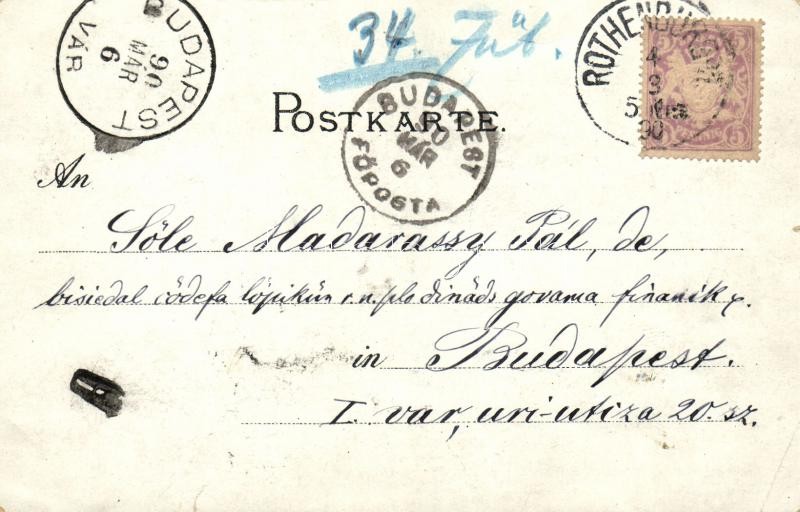 34. Jüb.
BUDAPEST
VÁR
90
MÁR
6
BUDAPEST
FŐPOSTA
90
MÁR
6
ROTHENBURG
4
3
5
90
5
POSTKARTE.
An
Söle Madarassy Pál, de,
bisiedal cödefa löpikün r. n. plo dinäds govama finanik,
in Budapest.
I. var, uri-utiza 20. sz.